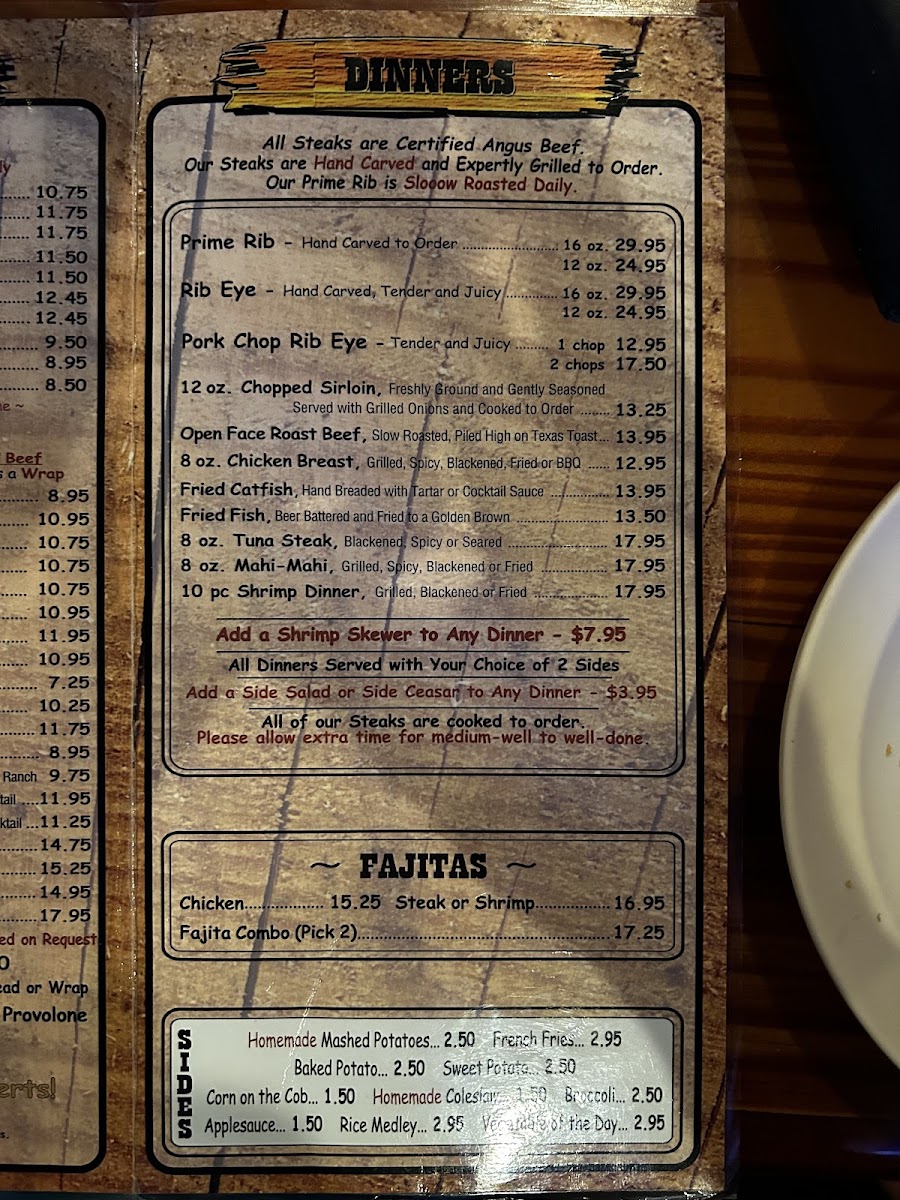 ly
10.75
11.75
11.75
11.50
11.50
12.45
12.45
9.50
8.95
8.50
Beef
s a Wrap
8.95
10.95
10.75
10.75
10.75
10.95
11.95
10.95
7.25
10.25
11.75
8.95
Ranch 9.75
tail ....11.95
ktail ...11.25
14.75
15.25
14.95
17.95
ed on Request
0
ead or Wrap
Provolone
erts!
s.
DINNERS
All Steaks are Certified Angus Beef.
Our Steaks are Hand Carved and Expertly Grilled to Order.
Our Prime Rib is Slooow Roasted Daily.
Prime Rib - Hand Carved to Order ........ 16 oz. 29.95
12 oz. 24.95
Rib Eye - Hand Carved, Tender and Juicy ........ 16 oz. 29.95
12 oz. 24.95
Pork Chop Rib Eye - Tender and Juicy ........ 1 chop 12.95
2 chops 17.50
12 oz. Chopped Sirloin, Freshly Ground and Gently Seasoned
Served with Grilled Onions and Cooked to Order ........ 13.25
Open Face Roast Beef, Slow Roasted, Piled High on Texas Toast... 13.95
8 oz. Chicken Breast, Grilled, Spicy, Blackened, Fried or BBQ ...... 12.95
Fried Catfish, Hand Breaded with Tartar or Cocktail Sauce ........ 13.95
Fried Fish, Beer Battered and Fried to a Golden Brown ........ 13.50
8 oz. Tuna Steak, Blackened, Spicy or Seared ........ 17.95
8 oz. Mahi-Mahi, Grilled, Spicy, Blackened or Fried ........ 17.95
10 pc Shrimp Dinner, Grilled, Blackened or Fried ........ 17.95
Add a Shrimp Skewer to Any Dinner - $7.95
All Dinners Served with Your Choice of 2 Sides
Add a Side Salad or Side Ceasar to Any Dinner - $3.95
All of our Steaks are cooked to order.
Please allow extra time for medium-well to well-done.
~ FAJITAS ~
Chicken........ 15.25 Steak or Shrimp........ 16.95
Fajita Combo (Pick 2)........ 17.25
SIDES
Homemade Mashed Potatoes... 2.50 French Fries... 2.95
Baked Potato... 2.50 Sweet Potato... 2.50
Corn on the Cob... 1.50 Homemade Coleslaw... 1.50 Broccoli... 2.50
Applesauce... 1.50 Rice Medley... 2.95 Vegetable of the Day... 2.95